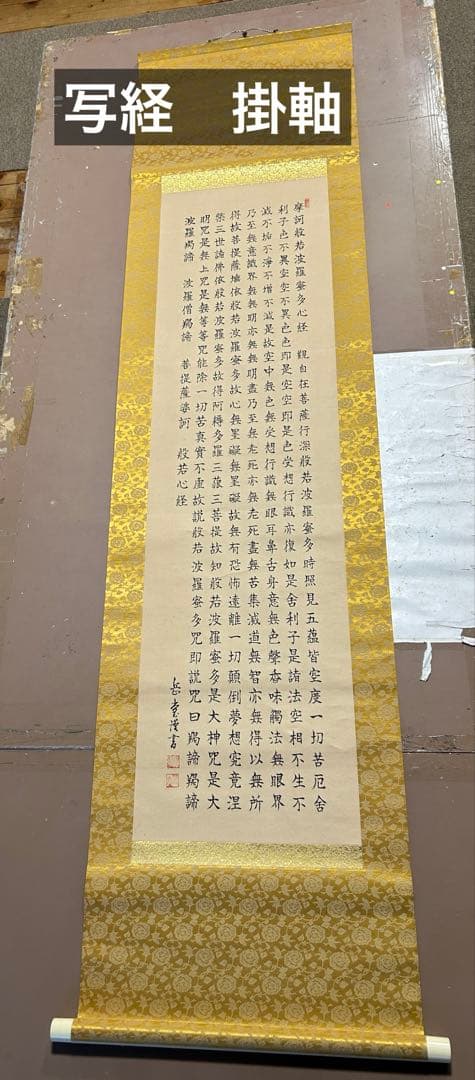 写経 掛軸
摩訶般若波羅蜜多心経 観自在菩薩行深般若波羅蜜多時照見五蘊皆空度一切苦厄舍
利子色不異空空不異色色即是空空即是色受想行識亦復如是舍利子是諸法空相不生不
滅不垢不淨不增不減是故空中無色無受想行識無眼耳鼻舌身意無色聲香味觸法無眼界
乃至無意識界無無明亦無無明盡乃至無老死亦無老死盡無苦集滅道無智亦無得以無所
得故菩提薩埵依般若波羅蜜多故心無罣礙無罣礙故無有恐怖遠離一切顛倒夢想究竟涅
槃三世諸佛依般若波羅蜜多故得阿耨多羅三藐三菩提故知般若波羅蜜多是大神咒是大
明咒是無上咒是無等等咒能除一切苦真實不虛故說般若波羅蜜多咒即說咒曰羯諦羯諦
波羅羯諦 波羅僧羯諦 菩提薩婆訶 般若心経
岳 謹書